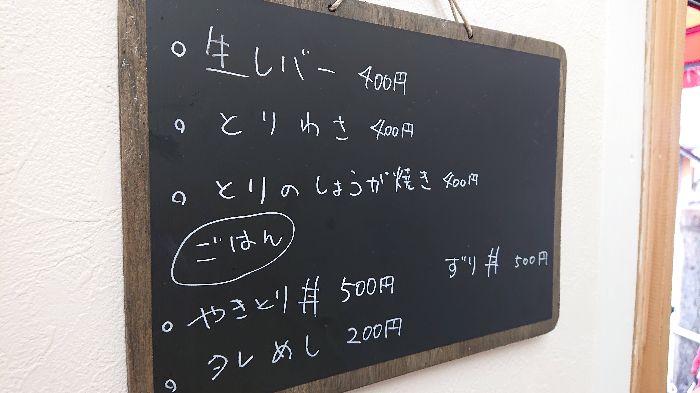 生レバー 400円
とりわさ 400円
とりのしょうが焼き 400円
ごはん
やきとり丼 500円
ずり丼 500円
タレめし 200円